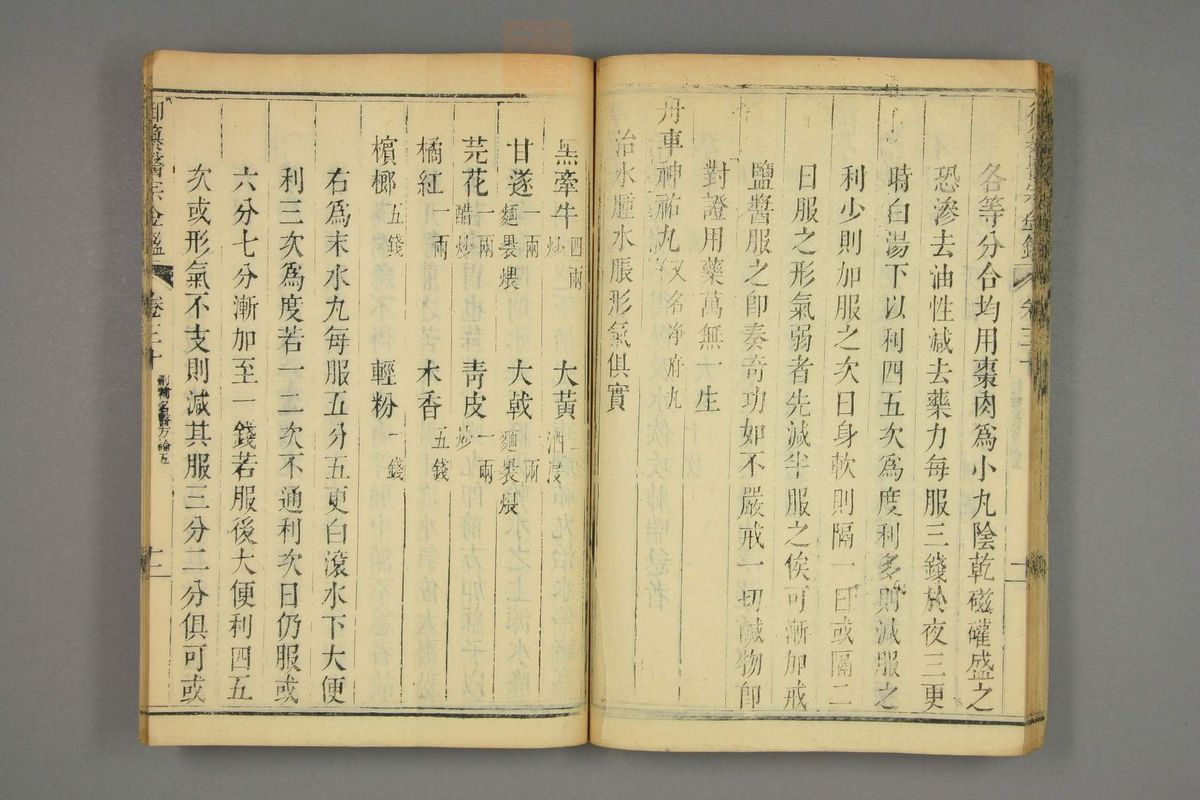 各等分合均用棗肉爲小丸陰乾磁礶盛之
恐滲去油性減去藥力每服三錢於夜三更
時白湯下以利四五次爲度利多則減服之
利少則加服之次日身軟則隔一日或隔二
日服之形氣弱者先減半服之俟可漸加戒
鹽醬服之卽奏奇功如不嚴戒一切鹹物卽
對證用藥萬無一生
舟車神祐丸又名淨府丸
治水腫水脹形氣俱實
黑牽牛四兩炒 大黃酒浸
甘遂一兩麵裹煨 大戟一兩麵裹煨
芫花一兩醋炒 靑皮一兩炒
橘紅一兩 木香五錢
檳榔五錢 輕粉一錢
右爲末水丸每服五分五更白滾水下大便
利三次爲度若一二次不通利次日仍服或
六分七分漸加至一錢若服後大便利四五
次或形氣不支則減其服三分二分俱可或
御纂醫宗金鑑 卷三十 刪補名醫方論五 十二